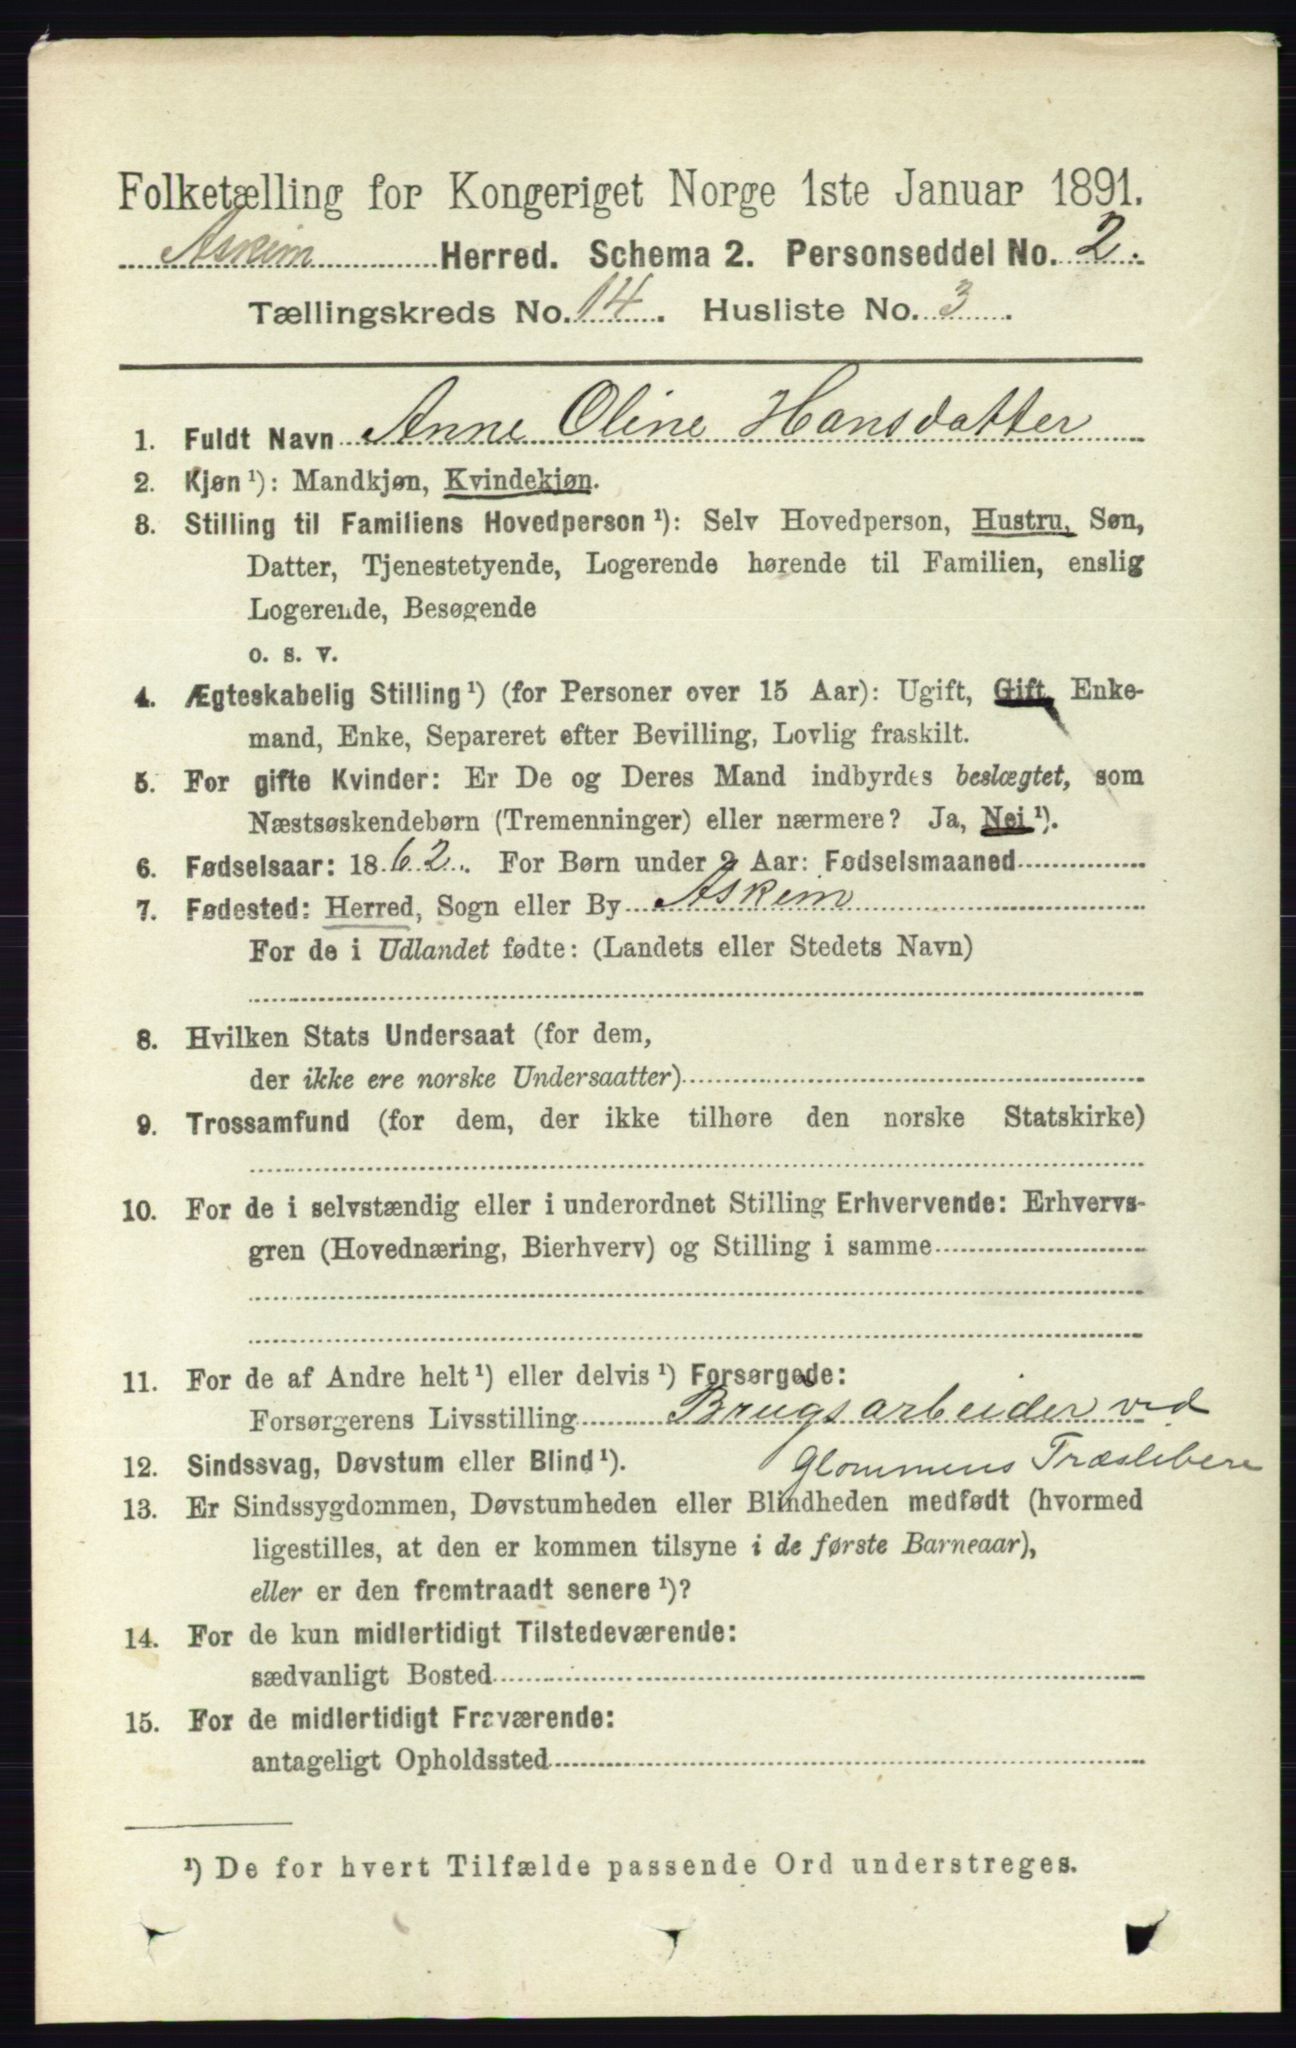 Folketælling for Kongeriget Norge 1ste Januar 1891.
Askim Herred. Schema 2. Personseddel No. 2.
Tællingskreds No. 14. Husliste No. 3.
1. Fuldt Navn Anne Oline Hansdatter
2. Kjøn ¹): Mandkjøn, Kvindekjøn.
3. Stilling til Familiens Hovedperson ¹): Selv Hovedperson, Hustru, Søn,
Datter, Tjenestetyende, Logerende hørende til Familien, enslig
Logerende, Besøgende
o. s. v.
4. Ægteskabelig Stilling ¹) (for Personer over 15 Aar): Ugift, Gift, Enke-
mand, Enke, Separeret efter Bevilling, Lovlig fraskilt.
5. For gifte Kvinder: Er De og Deres Mand indbyrdes beslægtet, som
Næstsøskendebørn (Tremenninger) eller nærmere? Ja, Nei ¹).
6. Fødselsaar: 1862. For Børn under 2 Aar: Fødselsmaaned
7. Fødested: Herred, Sogn eller By Askim
For de i Udlandet fødte: (Landets eller Stedets Navn)
8. Hvilken Stats Undersaat (for dem,
der ikke ere norske Undersaatter)
9. Trossamfund (for dem, der ikke tilhøre den norske Statskirke)
10. For de i selvstændig eller i underordnet Stilling Erhvervende: Erhvervs-
gren (Hovednæring, Bierhverv) og Stilling i samme
11. For de af Andre helt ¹) eller delvis ¹) Forsørgede:
Forsørgerens Livsstilling Brugsarbeider ved
Glommens Træsliberi
12. Sindssvag, Døvstum eller Blind ¹).
13. Er Sindssygdommen, Døvstumheden eller Blindheden medfødt (hvormed
ligestilles, at den er kommen tilsyne i de første Barneaar),
eller er den fremtraadt senere ¹)?
14. For de kun midlertidigt Tilstedeværende:
sædvanligt Bosted
15. For de midlertidigt Fraværende:
antageligt Opholdssted
¹) De for hvert Tilfælde passende Ord understreges.